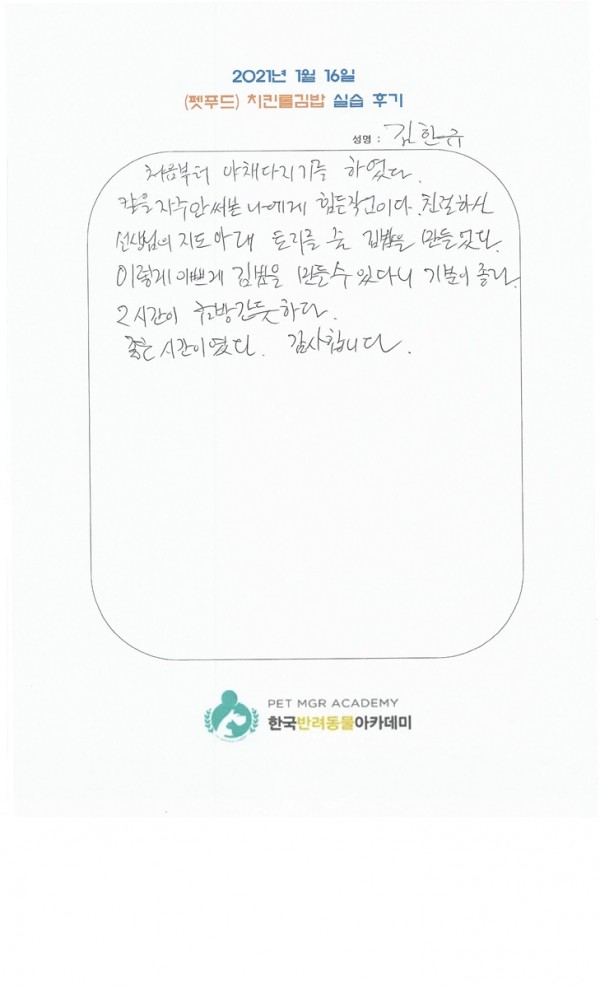 2021년 1월 16일
(펫푸드) 치킨롤김밥 실습 후기
성명 : 김한규
처음부터 야채다지기를 하였다.
칼을 자주 안써본 나에게 힘든작업이다. 친절하신
선생님의 지도 아래 김밥을 만들었다.
이렇게 이쁘게 김밥을 만들수 있다니 기분이 좋다.
2시간이 금방간듯하다.
좋은 시간이였다. 감사합니다.
PET MGR ACADEMY
한국반려동물아카데미